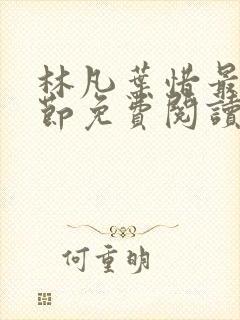 林凡葉惜最
節免費閱讀
何重明